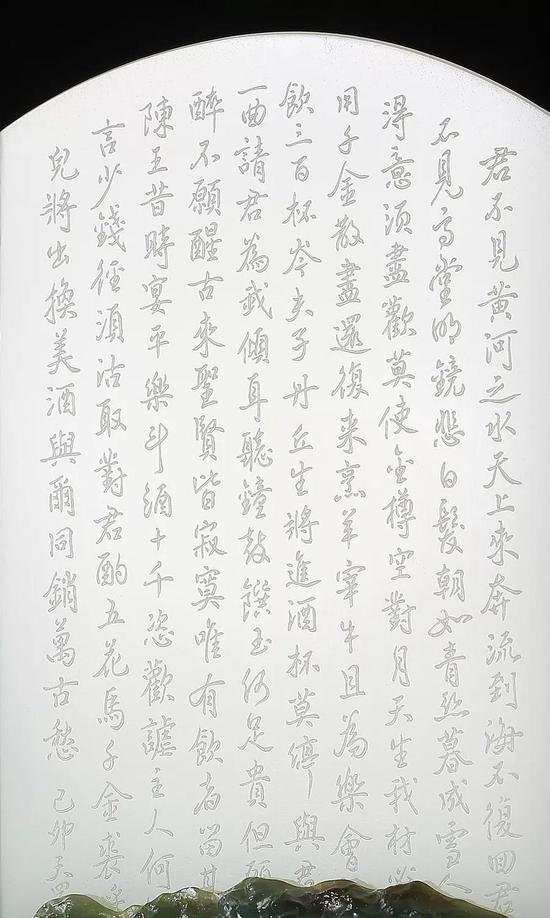 君不見黃河之水天上來奔流到海不復回君
不見高堂明鏡悲白髮朝如青絲暮成雪人
得意須盡歡莫使金樽空對月天生我材必
用千金散盡還復来烹羊宰牛且為樂會
飲三百杯岑夫子丹丘生將進酒杯莫停與君
一曲請君為我傾耳聽鐘鼓饌玉何足貴但願
醉不願醒古來聖賢皆寂寞唯有飲者留其
陳王昔時宴平樂斗酒十千恣歡謔主人何
言少錢徑須沽取對君酌五花馬千金裘
兒將出換美酒與爾同銷萬古愁 己卯天